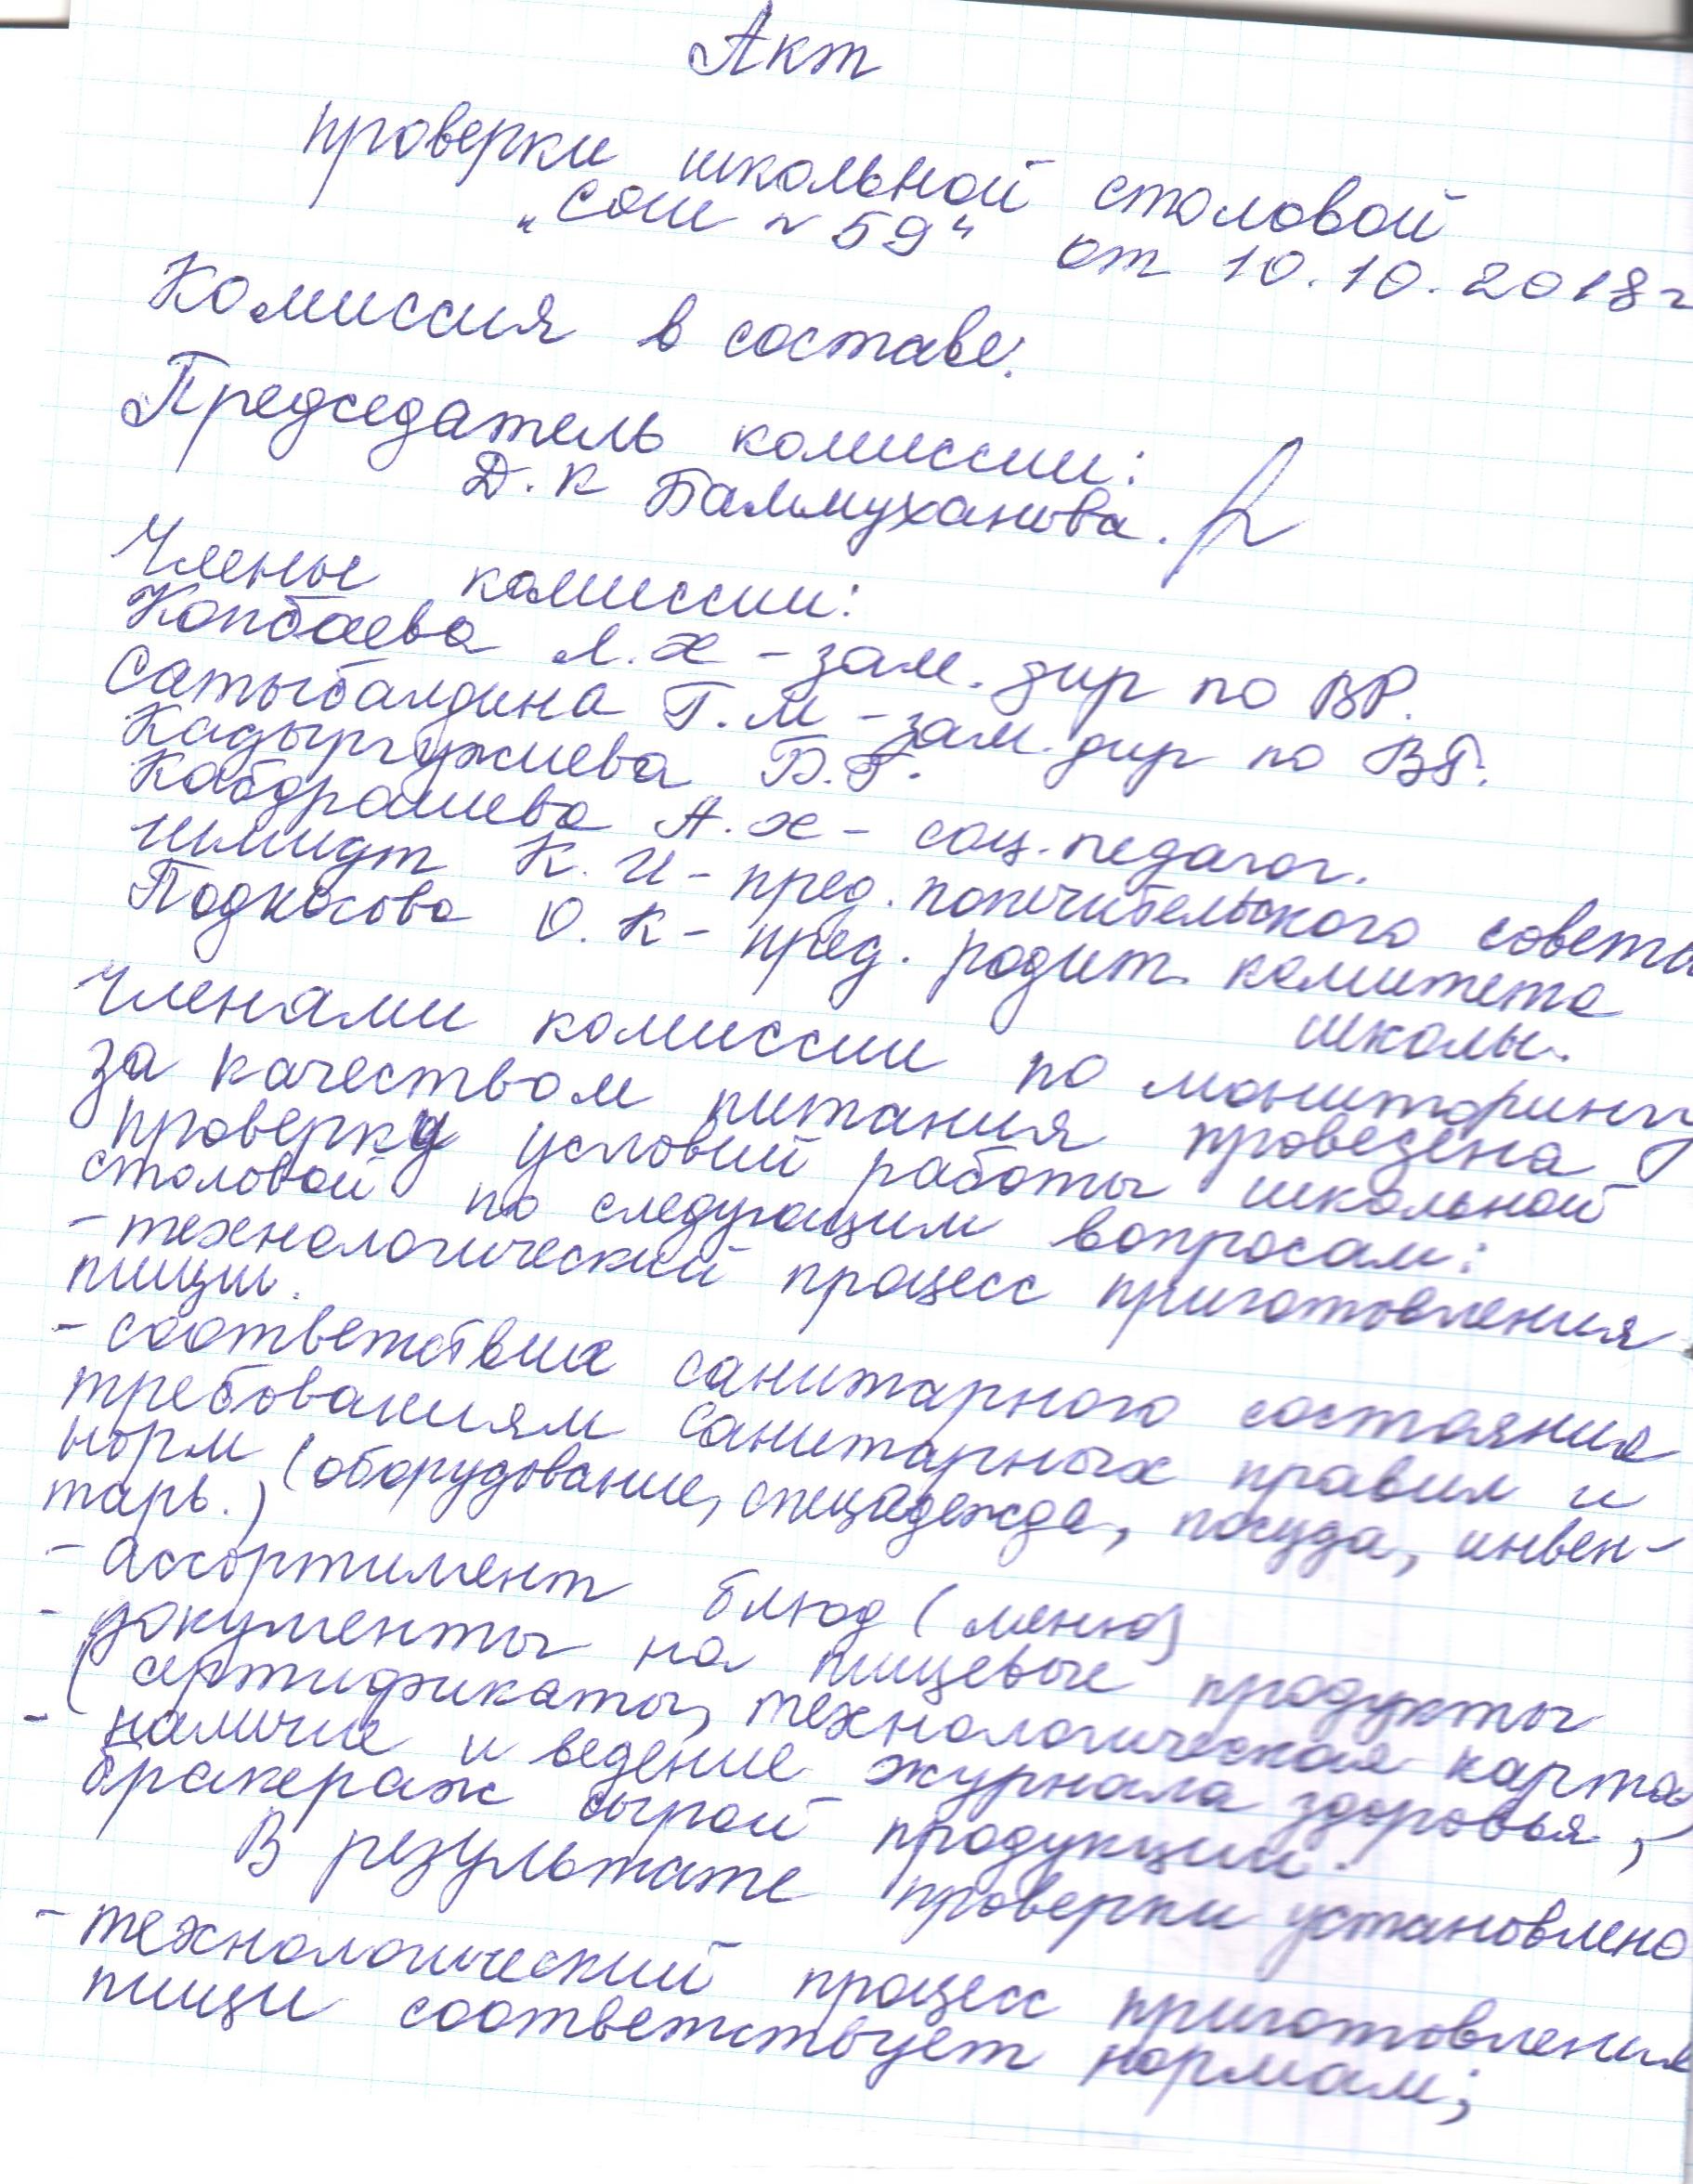 Акт
проверки школьной столовой
"СОШ № 59" от 10.10.2018г
Комиссия в составе:
Председатель комиссии:
Д.К Баймуханова.
Члены комиссии:
Копбаева Л.Х - зам. дир по ВР.
Сатыбалдина Г.М - зам. дир по ВР.
Кадыргужиева Б.Г.
Кабдрашева А.Х - соц. педагог.
Шмидт К.И - пред. попечительского совета
Подкосова О.К - пред. родит. комитета
школы.
Членами комиссии по мониторингу
за качеством питания проведена
проверку условий работы школьной
столовой по следующим вопросам:
- технологический процесс приготовления
пищи.
- соответствие санитарного состояния
требованиям санитарных правил и
норм (оборудование, спецодежда, посуда, инвен-
тарь.)
- ассортимент блюд (меню)
- документы на пищевые продукты
(сертификаты, технологическая карта)
- наличие и ведение журнала здоровья,
бракераж сырой продукции.
В результате проверки установлено
- технологический процесс приготовления
пищи соответствует нормам;